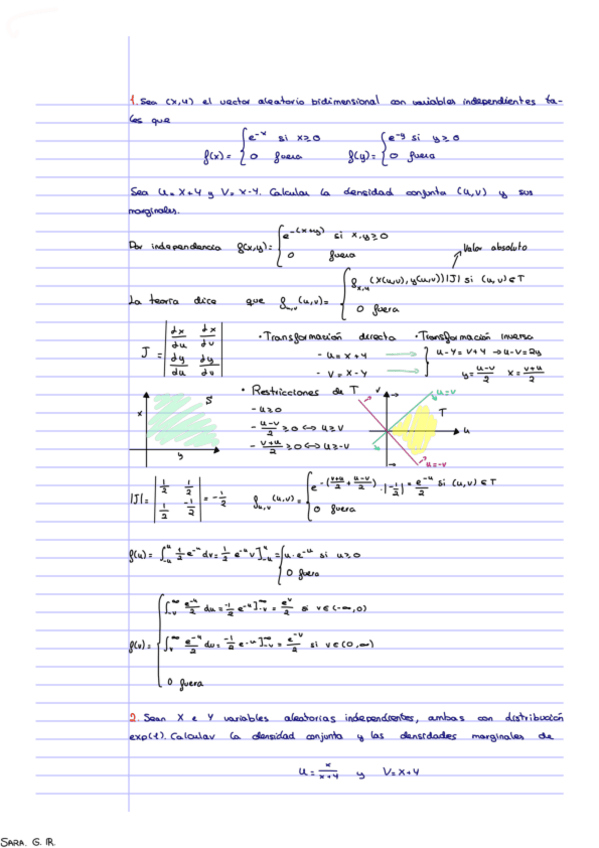 1. Sea (X,Y) el vector aleatorio bidimensional con variables independientes ta-
les que
f(x)= { e^-x si x≥0    f(y)= { e^-y si y≥0
0 fuera    0 fuera
Sea U=X+Y y V=X-Y. Calcular la densidad conjunta (U,V) y sus
marginales.
Por independencia f(x,y)= { e^-(x+y) si x,y≥0
0 fuera
Valor absoluto
La teoría dice que f_u,v(u,v)= { f_x,y(x(u,v), y(u,v))|J| si (u,v)∈T
0 fuera
J = | dx/du dx/dv |
| dy/du dy/dv |
· Transformación directa · Transformación inversa
- U=X+Y → } u-y=v+y → u-v=2y
- V=X-Y → y=(u-v)/2 x=(v+u)/2
· Restricciones de T
- u≥0
- (u-v)/2 ≥0 ⇔ u≥v
- (v+u)/2 ≥0 ⇔ u≥-v
S
x
y
v
u=v
T
u
u=-v
|J|= | 1/2 1/2 | = -1/2
| 1/2 -1/2 |
f_u,v(u,v)= { e^-((v+u)/2 + (u-v)/2) · |-1/2| = e^-u/2 si (u,v)∈T
0 fuera
f(u)= ∫_-u^u 1/2 e^-u dv = 1/2 e^-u v]_-u^u = { u·e^-u si u≥0
0 fuera
f(v)= { ∫_-v^∞ e^-u/2 du = -1/2 e^-u]_-v^∞ = e^v/2 si v∈(-∞,0)
∫_v^∞ e^-u/2 du = -1/2 e^-u]_-v^∞ = e^-v/2 si v∈(0,∞)
0 fuera
2. Sean X e Y variables aleatorias independientes, ambas con distribución
exp(1). Calcular la densidad conjunta y las densidades marginales de
U= X/(X+Y) y V=X+Y
SARA. G. IR.